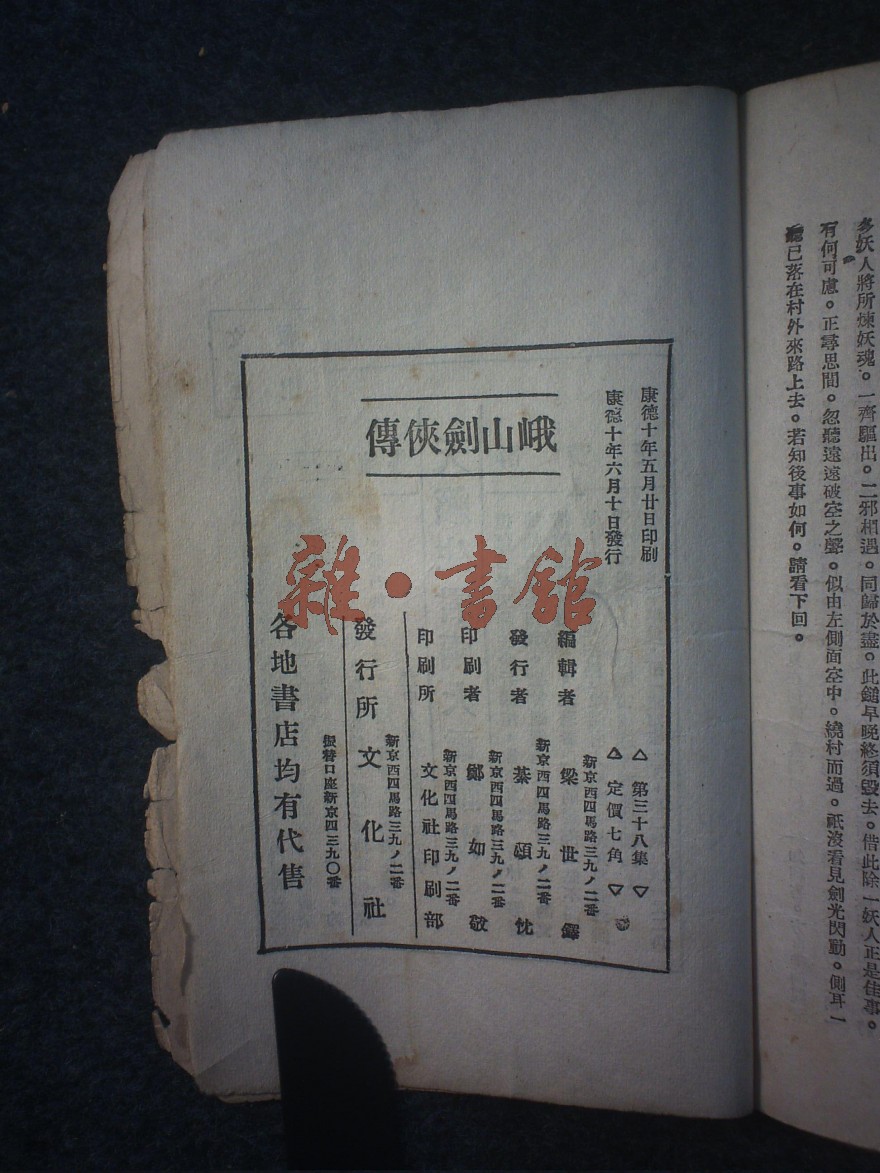 多妖人將所煉妖魂。一齊驅出。二邪相遇。同歸於盡。此鎚早晚終須毀去。借此除一妖人正是佳事。
有何可慮。正尋思間。忽聽遠遠破空之聲。似由左側面空中。繞村而過。祇沒看見劍光閃動。側耳一
聽已落在村外來路上去。若知後事如何。請看下回。
康德十年五月廿日印刷
康德十年六月十日發行
△第三十八集▽
△定價七角▽
峨山劍俠傳
新京西四馬路三九ノ二番
編輯者 梁世鐸
新京西四馬路三九ノ二番
發行者 綦頤忱
新京西四馬路三九ノ二番
印刷者 鄭如敬
新京西四馬路三九ノ二番
印刷所 文化社印刷部
新京西四馬路三九ノ二番
發行所 文化社
振替口座新京四三九〇番
各地書店均有代售
雜·書館